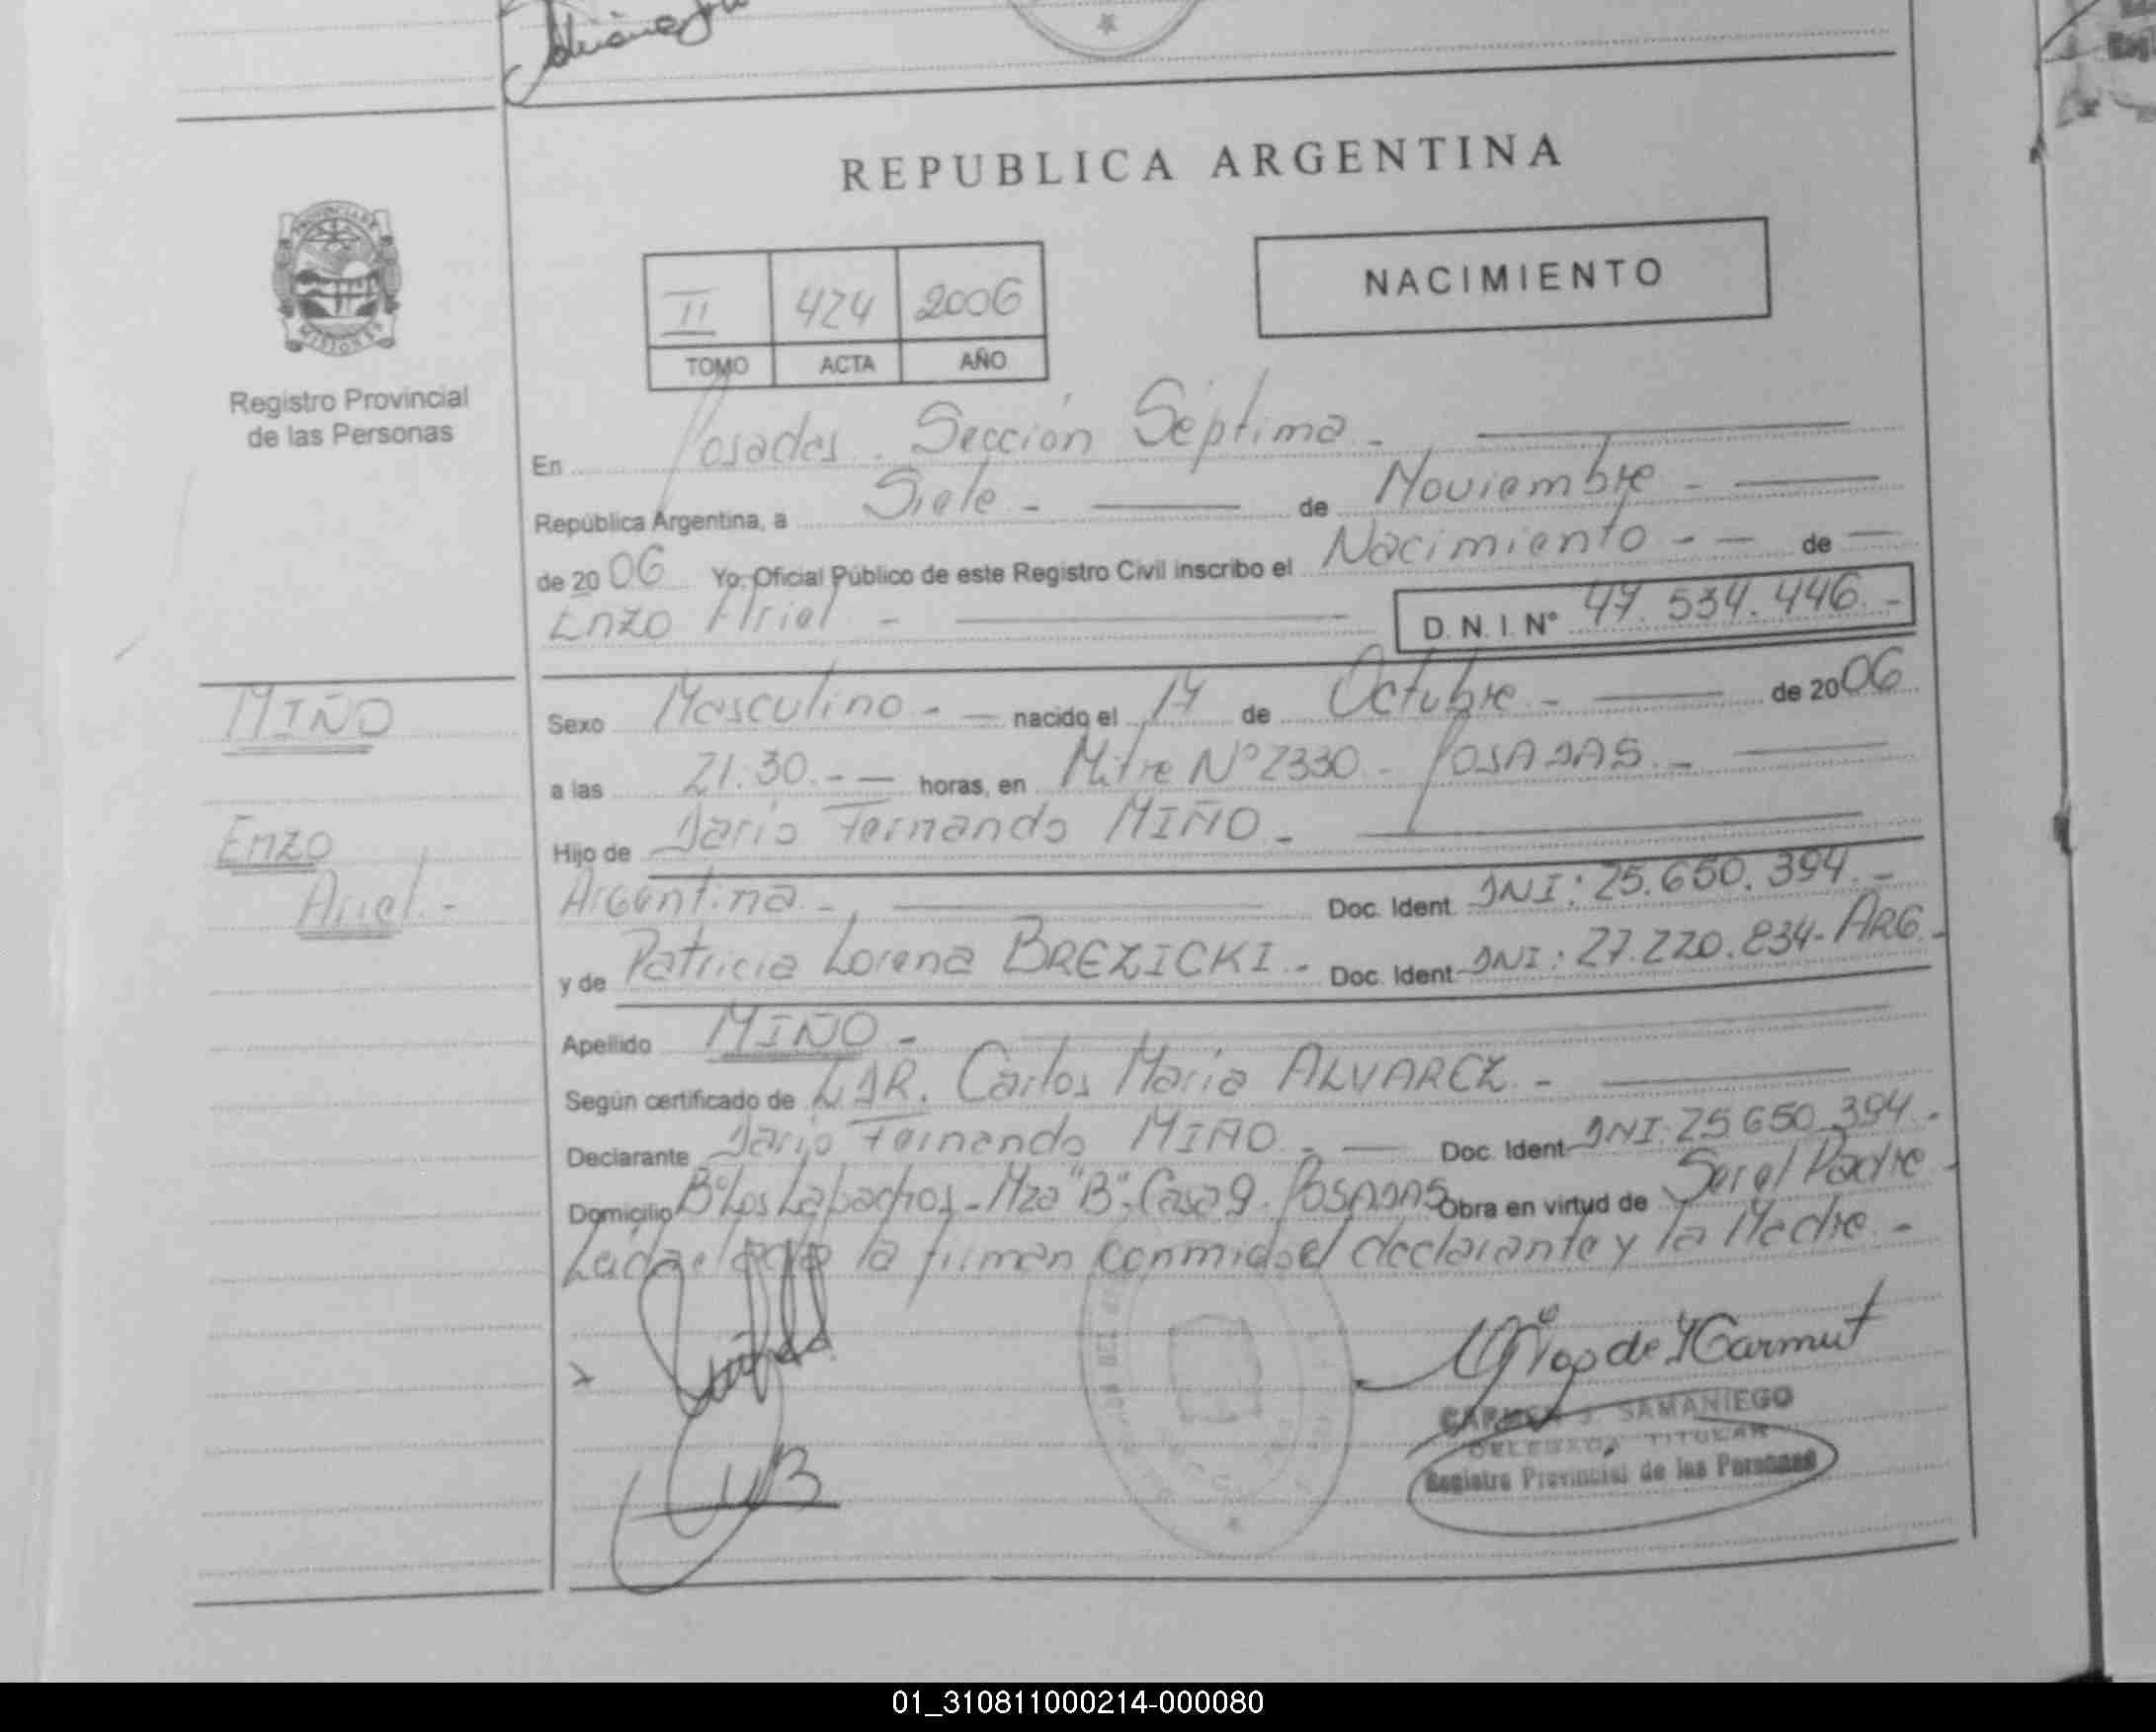 REPUBLICA ARGENTINA
PROVINCIA DE
MISIONES
Registro Provincial
de las Personas
NACIMIENTO
II 424 2006
TOMO ACTA AÑO
En Posadas. Sección Séptima.-
República Argentina, a Siete - de Noviembre -
de 2006 Yo, Oficial Público de este Registro Civil inscribo el Nacimiento - - de
Enzo Ariel - D. N. I. Nº 47.534.446.-
MIÑO
Sexo Masculino - nacido el 14 de Octubre - de 2006
a las 21:30.- horas, en Mitre Nº 2330 - POSADAS.-
Enzo
Hijo de Dario Fernando MIÑO -
Ariel -
Argentina - Doc. Ident. DNI: 25.650.394.-
y de Patricia Lorena BREZICKI - Doc. Ident DNI: 27.220.834- ARG.-
Apellido MIÑO -
Según certificado de DR. Carlos Maria ALVAREZ -
Declarante Dario Fernando MIÑO.- Doc. Ident DNI. 25.650.394.-
Domicilio Bº Los Lapachos - Mza "B"- Casa 9. POSADAS Obra en virtud de Ser el Padre
Leida el acta la firman conmigo el declarante y la Madre.-
CARMEN J. SAMANIEGO
DELEGADA TITULAR
Registro Provincial de las Personas
01_310811000214-000080